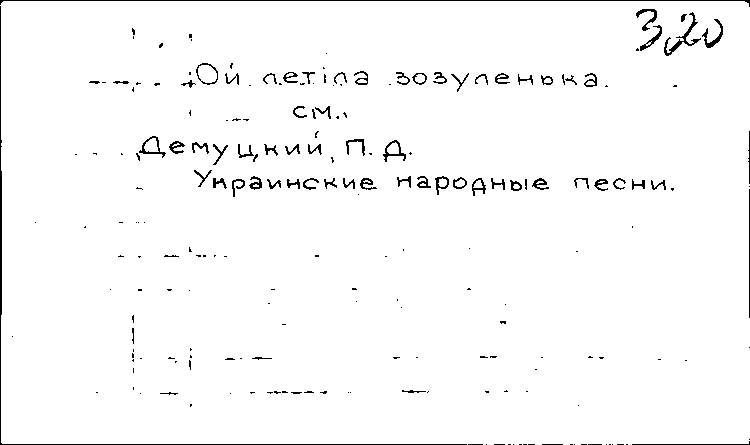 320
Ой летіла зозуленька.
см.
Демуцкий, П. Д.
Украинские народные песни.